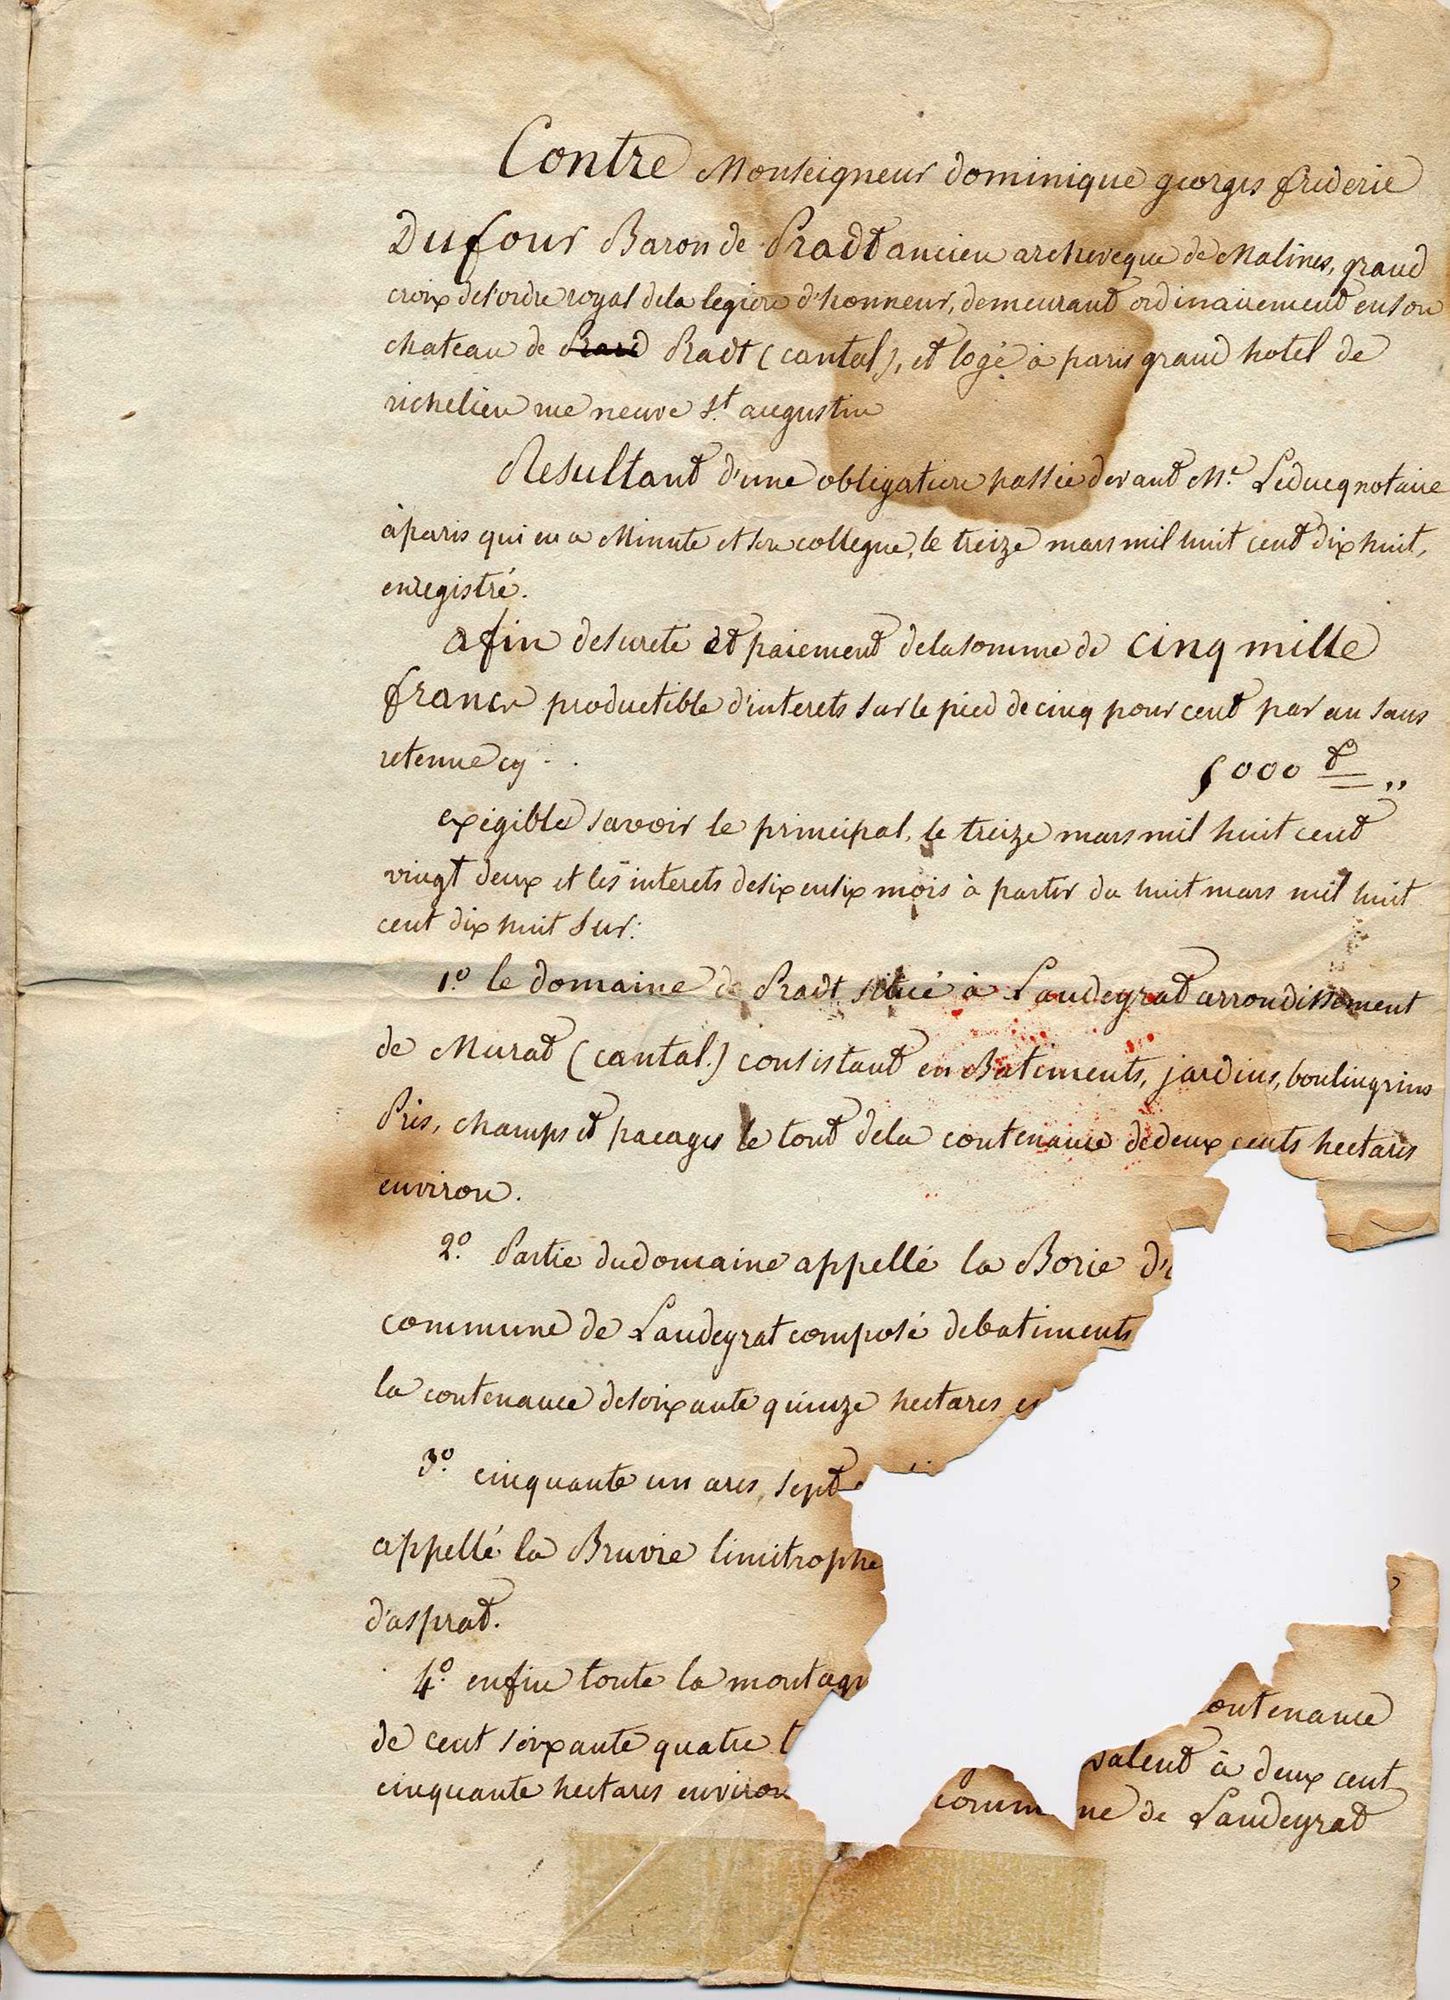 Contre Monseigneur dominique georges frederic
Dufour Baron de Pradt ancien archeveque de Malines, grand
croix de l'ordre royal de la legion d'honneur, demeurant ordinairement en son
chateau de Pradt (cantal), et logé à paris grand hotel de
richelieu rue neuve St. augustin
Resultant d'une obligation passée devant Me. Leducq notaire
à paris qui en a Minute et son collegue, le treize mars mil huit cent dix huit,
enregistré.
afin de sureté et paiement de la somme de cinq mille
francs productible d'interets sur le pied de cinq pour cent par an sans
retenue cy . .
5000 f „
exigible savoir le principal, le treize mars mil huit cent
vingt deux et les interets de six en six mois à partir du huit mars mil huit
cent dix huit sur:
1.o le domaine de Pradt situé à Landeyrat arrondissement
de Murat (cantal.) consistant en Batements, jardins, boulingrins
Prés, champs et pacages le tout de la contenance de deux cents hectares
environ.
2.o Partie du domaine appellé la Borie d'
commune de Landeyrat composé de batiments
la contenance de soixante quinze hectares
3.o cinquante un ares, sept
appellé la Bruvie limitrophe
d'asprat.
4.o enfin toute la montagn contenance
de cent soixante quatre valent à deux cent
cinquante hectares environ commune de Landeyrat